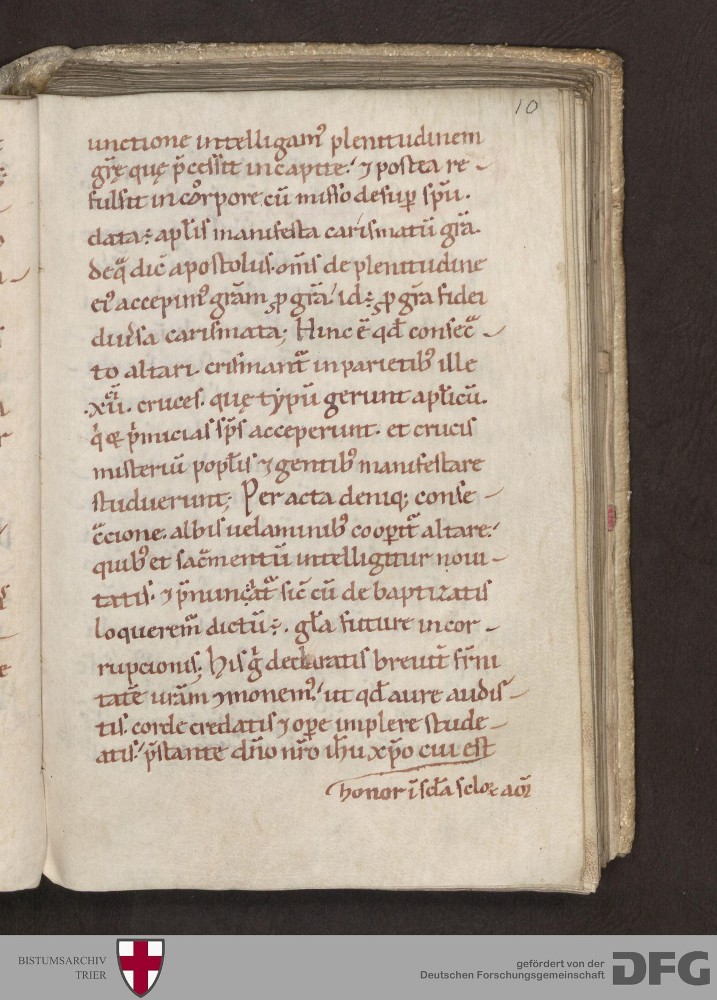 10
unctione intelligam᷒ plenitudinem
gr̄ę quę p̄cessit in capite⁏ ⁊ postea re-
fulsit in corpore, cū misso desup̱ spū.
data÷ apl̄is manifesta carismatū gr̄a.
de q̄ dic̄ apostolus. om̄s de plenitudine
ei᷒ accepim᷒ gr̄am ꝓ gr̄a⁏ id÷ ꝓ gr̄a fidei
diūsa carismata; Hinc ē qd̄ consec̄-
to altari. crismant᷑ in parietib᷒ ille
.xii. cruces. quę typū gerunt apl̄icū.
qi ⁊ p̄micias sp̄s acceperunt. et crucis
misteriū popl̄is ⁊ gentib᷒ manifestare
studuerunt; Peracta deniq; conse-
c̄cione. albis uelaminib᷒ coop̱it᷑ altare⁏
quib᷒ et sac̄mentū intelligitur noui-
tatis. ⁊ p̄nunciat᷑ sic̄ cū de baptizatis
loquerem᷑ dictū÷. gl̄a future incor-
rupcionis; His g̊ declaratis breuit̄ fr̄ni
tatē ur̄am ⁊monem᷒⁏ ut qd̄ aure audis-
tis. corde credatis ⁊ op̱e implere stude-
atis⁏ p̄stante dn̄o nr̄o ih̄u xp̄o cui est
honor ī scl̄a sclo℞ am̄
BISTUMSARCHIV
TRIER
gefördert von der
Deutschen Forschungsgemeinschaft
DFG